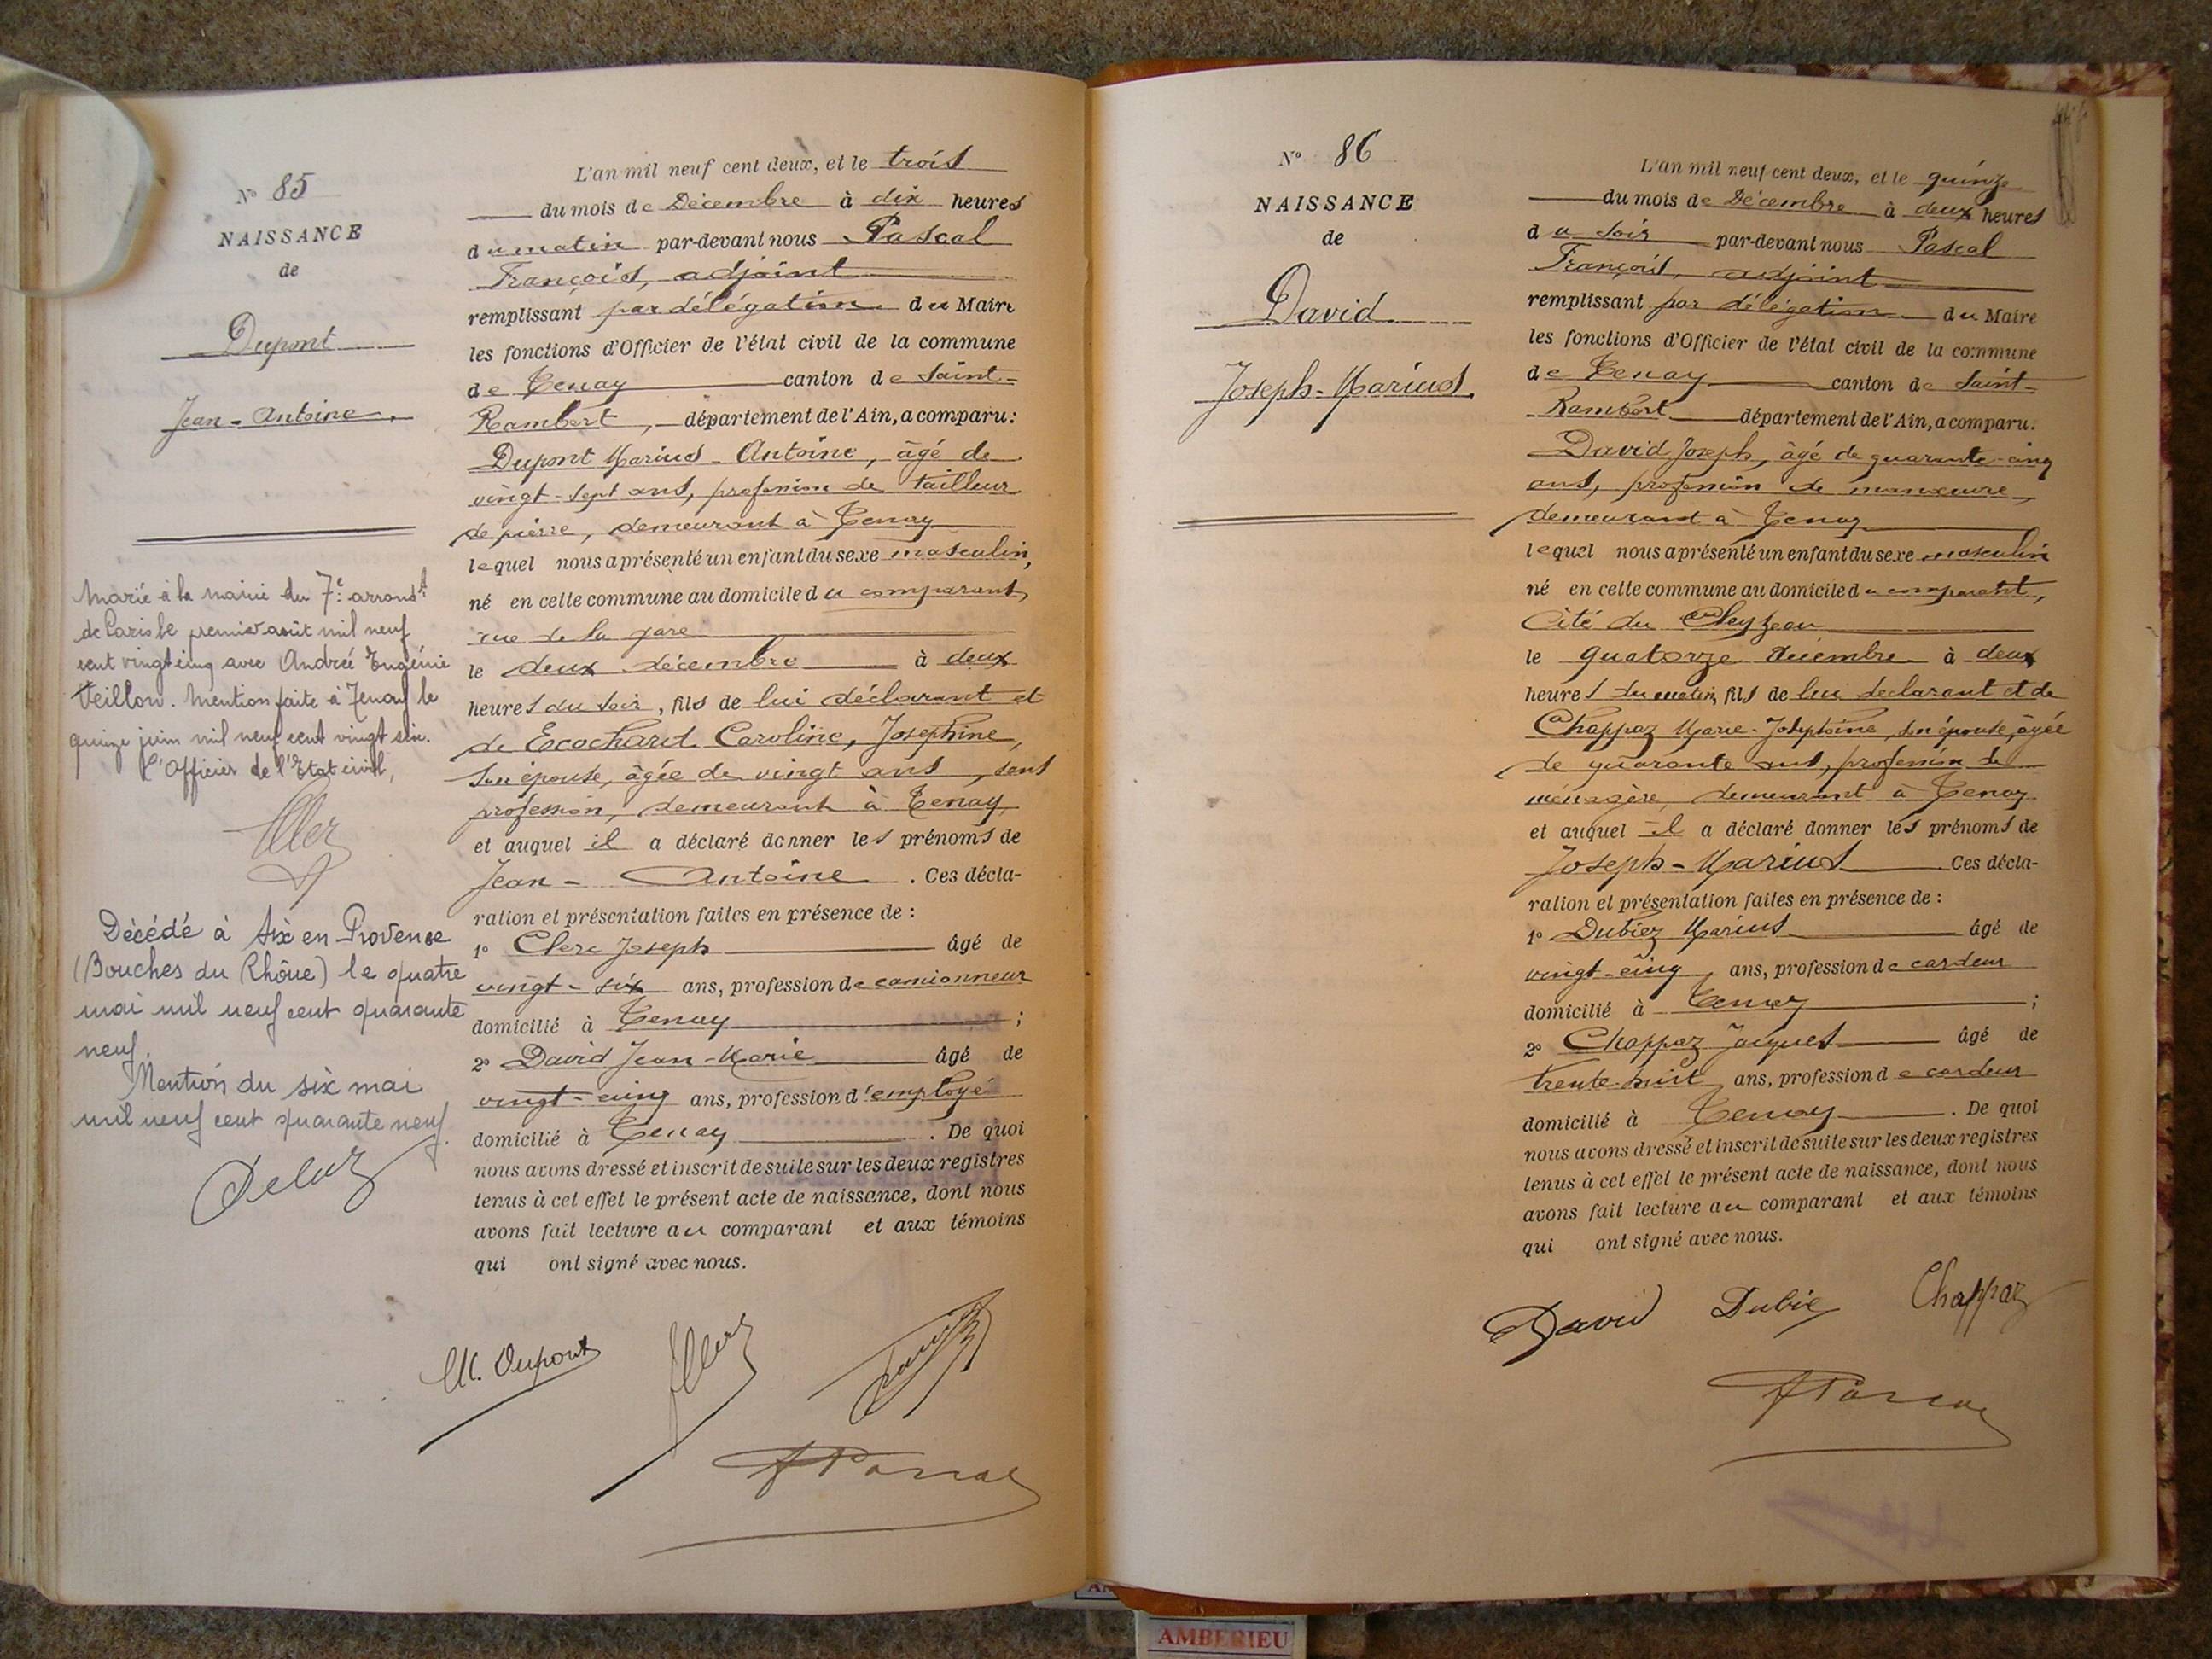 N° 85
NAISSANCE
de
Dupont
Jean-Antoine.
Marié à la mairie du 7e arrondt
de Paris le premier août mil neuf
cent vingt cinq avec Andrée Eugénie
Veillon. Mention faite à Tenay le
quinze juin mil neuf cent vingt six.
L'Officier de l'Etat civil,
Décédé à Aix en Provence
(Bouches du Rhône) le quatre
mai mil neuf cent quarante
neuf.
Mention du six mai
mil neuf cent quarante neuf.
L'an mil neuf cent deux, et le trois
du mois de Décembre à dix heures
du matin par-devant nous Pascal
François, adjoint
remplissant par délégation du Maire
les fonctions d'Officier de l'état civil de la commune
de Tenay canton de Saint-
Rambert, département de l'Ain, a comparu:
Dupont Marius-Antoine, âgé de
vingt-sept ans, profession de tailleur
de pierre, demeurant à Tenay
lequel nous a présenté un enfant du sexe masculin,
né en cette commune au domicile du comparant,
rue de la gare
le deux décembre à deux
heures du soir, fils de lui déclarant et
de Ecochard Caroline, Joséphine,
son épouse, âgée de vingt ans, sans
profession, demeurant à Tenay
et auquel il a déclaré donner les prénoms de
Jean-Antoine. Ces décla-
ration et présentation faites en présence de :
1° Clerc Joseph âgé de
vingt-six ans, profession de camionneur
domicilié à Tenay ;
2° David Jean-Marie âgé de
vingt-cinq ans, profession d'employé
domicilié à Tenay. De quoi
nous avons dressé et inscrit de suite sur les deux registres
tenus à cet effet le présent acte de naissance, dont nous
avons fait lecture au comparant et aux témoins
qui ont signé avec nous.
M. Dupont
N° 86
NAISSANCE
de
David
Joseph-Marius.
L'an mil neuf cent deux, et le quinze
du mois de Décembre à deux heures
du soir par-devant nous Pascal
François, adjoint
remplissant par délégation du Maire
les fonctions d'Officier de l'état civil de la commune
de Tenay canton de Saint-
Rambert département de l'Ain, a comparu.
David Joseph, âgé de quarante-cinq
ans, profession de manœuvre,
demeurant à Tenay
lequel nous a présenté un enfant du sexe masculin
né en cette commune au domicile du comparant,
Cité du
le quatorze décembre à deux
heures du matin, fils de lui déclarant et de
Chappaz Marie-Joséphine, son épouse, âgée
de quarante ans, profession de
ménagère demeurant à Tenay
et auquel il a déclaré donner les prénoms de
Joseph-Marius. Ces décla-
ration et présentation faites en présence de :
1° Dubiez Marius âgé de
vingt-cinq ans, profession de cardeur
domicilié à Tenay ;
2° Chappaz Jacques âgé de
trente-huit ans, profession de cardeur
domicilié à Tenay. De quoi
nous avons dressé et inscrit de suite sur les deux registres
tenus à cet effet le présent acte de naissance, dont nous
avons fait lecture au comparant et aux témoins
qui ont signé avec nous.
David Dubiez Chappaz
AMBERIEU